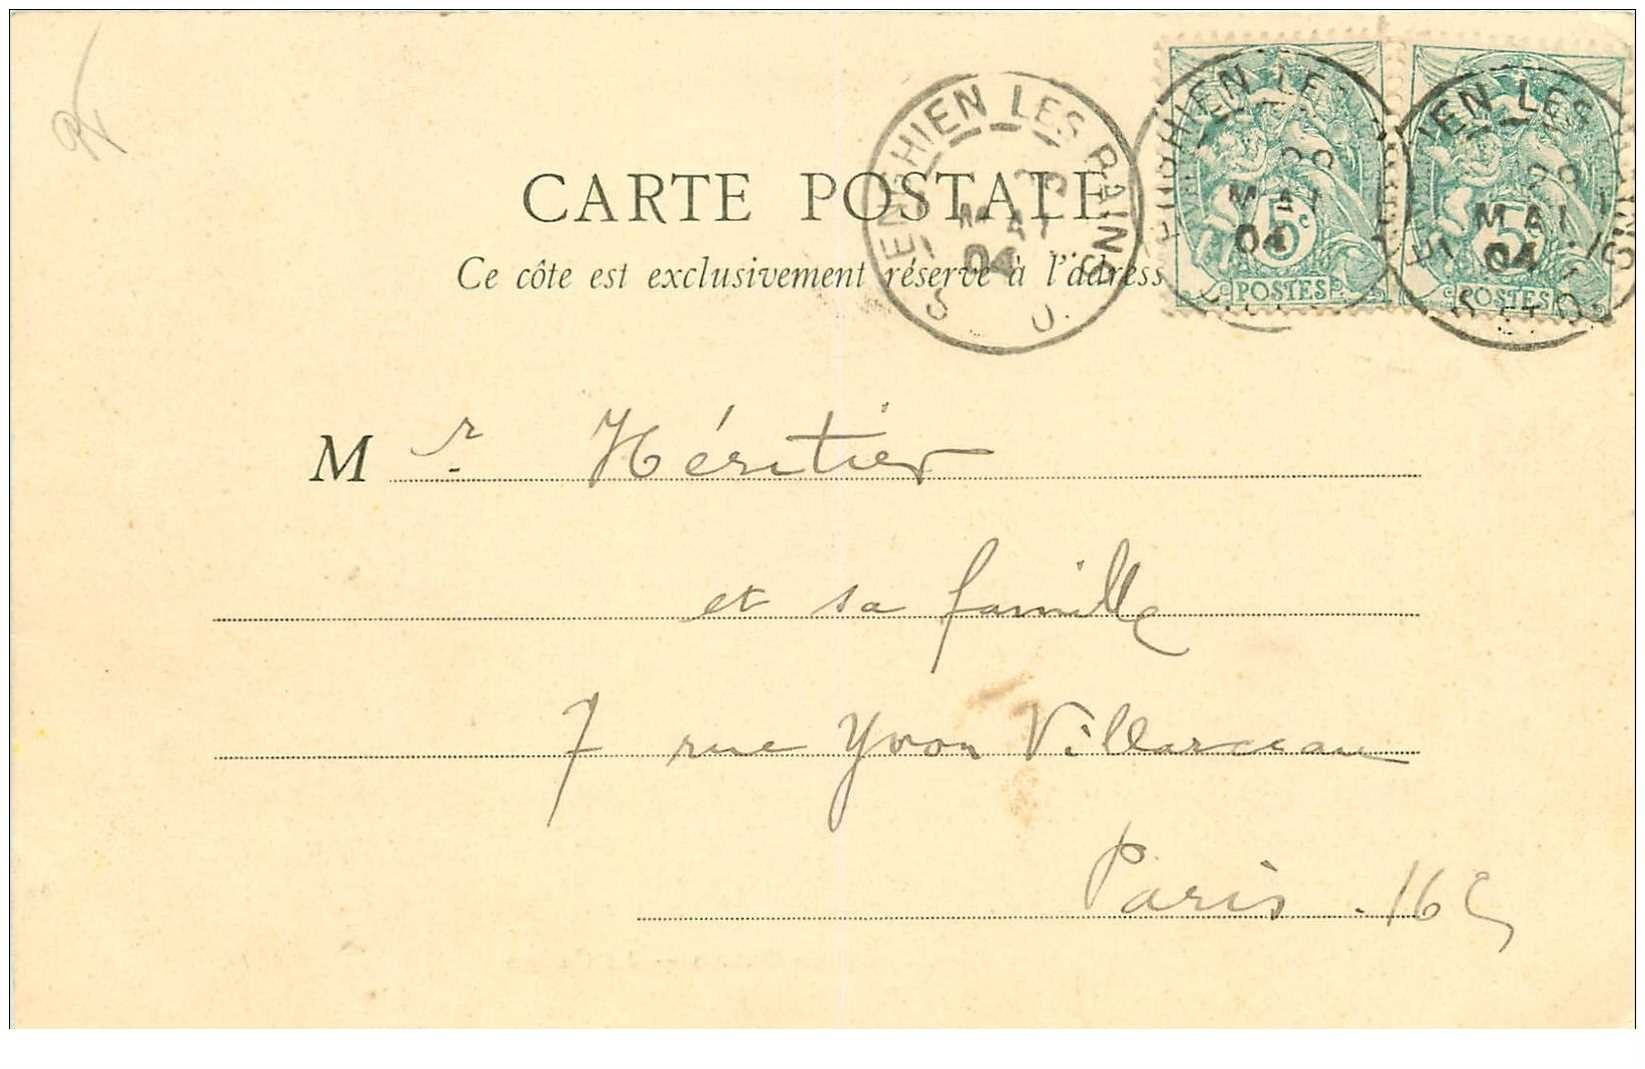 CARTE POSTALE
Ce côte est exclusivement réservé à l'adress
ENGHIEN LES BAINS
MAI
04
S. O.
ENGHIEN LES
28
MAI
04
5c
POSTES
IEN LES BAINS
28
MAI
04
5c
POSTES
S. O.
M r Héritier
et sa famille
7 rue Yvon Villarceau
Paris . 16e